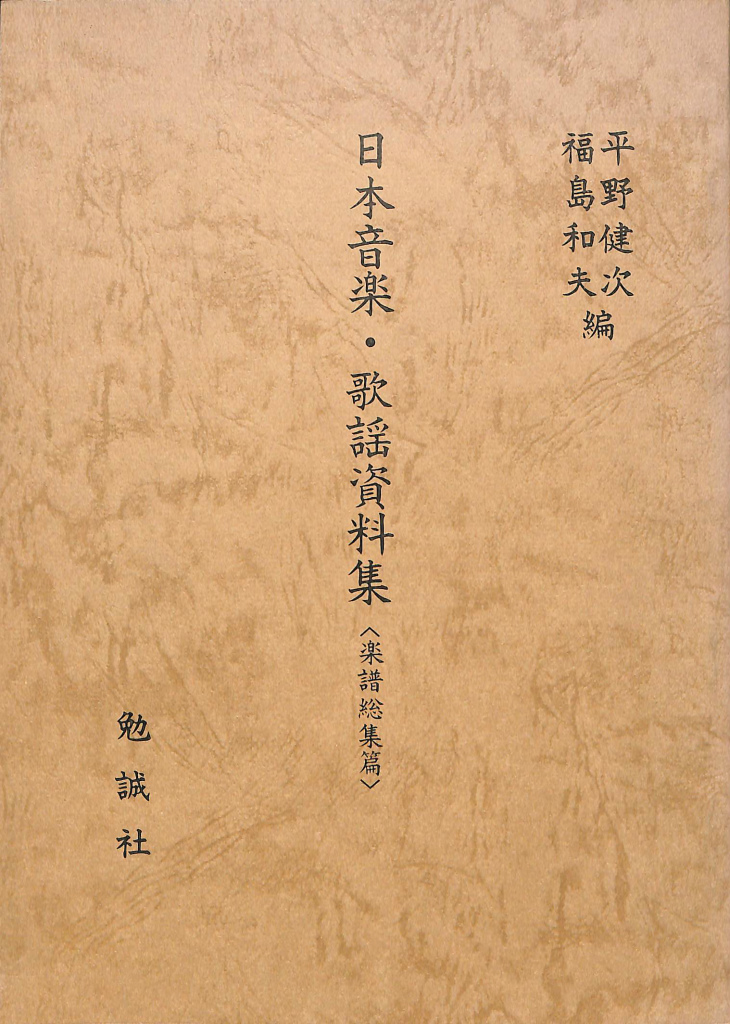 平野健次
福島和夫
編
日本音楽・歌謡資料集〈楽譜総集篇〉
勉誠社